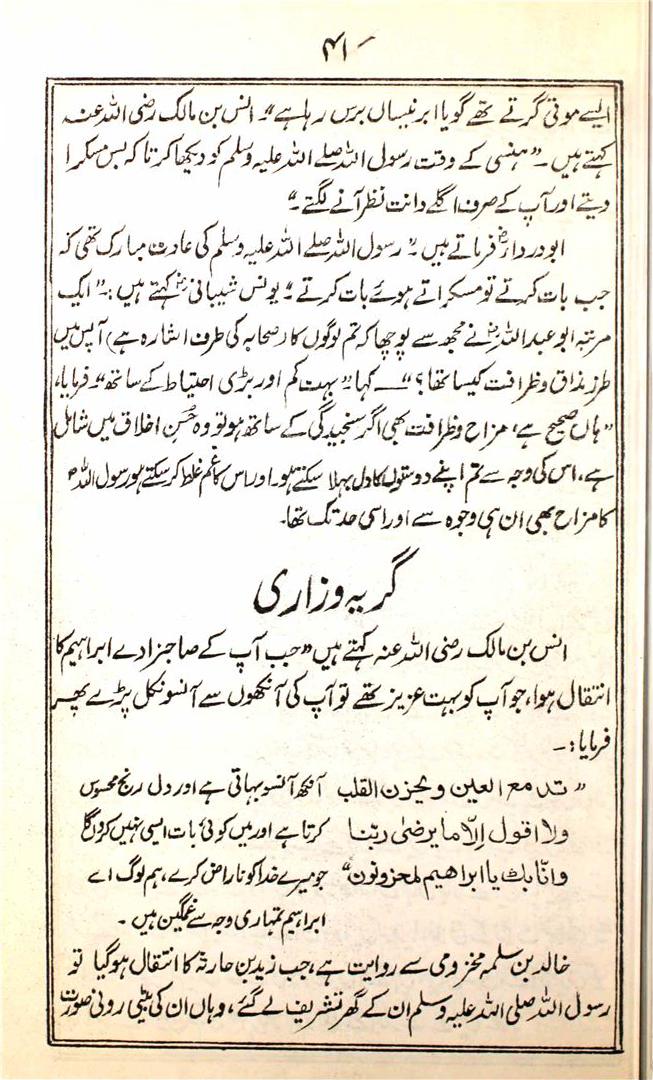 ۴۱
ایسے موتی گرتے تھے گویا ابر نیساں برس رہا ہے"۔ انس بن مالک رضی اللہ عنہ
کہتے ہیں۔ "ہنسی کے وقت رسول اللہ صلے اللہ علیہ وسلم کو دیکھا کرتا کہ بس مسکرا
دیتے اور آپ کے صرف اگلے دانت نظر آنے لگتے۔"
ابودردارؓ فرماتے ہیں۔ "رسول اللہ صلے اللہ علیہ وسلم کی عادت مبارک تھی کہ
جب بات کرتے تو مسکراتے ہوئے بات کرتے"۔ یونس شیبانیؒ کہتے ہیں:۔ "ایک
مرتبہ ابو عبداللہؒ نے مجھ سے پوچھا کہ تم لوگوں کا (صحابہ کی طرف اشارہ ہے) آپس میں
طرز مذاق و ظرافت کیسا تھا؟" — کہا "بہت کم اور بڑی احتیاط کے ساتھ" فرمایا،
"ہاں صحیح ہے، مزاح و ظرافت بھی اگر سنجیدگی کے ساتھ ہو تو وہ حُسنِ اخلاق میں شامل
ہے، اس کی وجہ سے تم اپنے دوستوں کا دل بہلا سکتے ہو۔ اور اس کا غم غلط کر سکتے ہو رسول اللہؐ
کا مزاح بھی ان ہی وجوہ سے اور اسی حد تک تھا۔
گریہ وزاری
انس بن مالک رضی اللہ عنہ کہتے ہیں "جب آپ کے صاحبزادے ابراہیم کا
انتقال ہوا، جو آپ کو بہت عزیز تھے تو آپ کی آنکھوں سے آنسو نکل پڑے پھر
فرمایا:۔
"تدمع العین و یحزن القلب
ولا اقول الّا ما یرضی ربّنا
وانّا بك یا ابراھیم لمحزونون"
آنکھ آنسو بہاتی ہے اور دل رنج محسوس
کرتا ہے اور میں کوئی بات ایسی نہیں کروں گا
جو میرے خدا کو ناراض کرے، ہم لوگ اے
ابراہیم تمہاری وجہ سے غمگین ہیں۔
خالد بن سلمہ مخزومی سے روایت ہے، جب زید بن حارثہ کا انتقال ہو گیا تو
رسول اللہ صلی اللہ علیہ وسلم ان کے گھر تشریف لے گئے، وہاں ان کی بیٹی رونی صورت